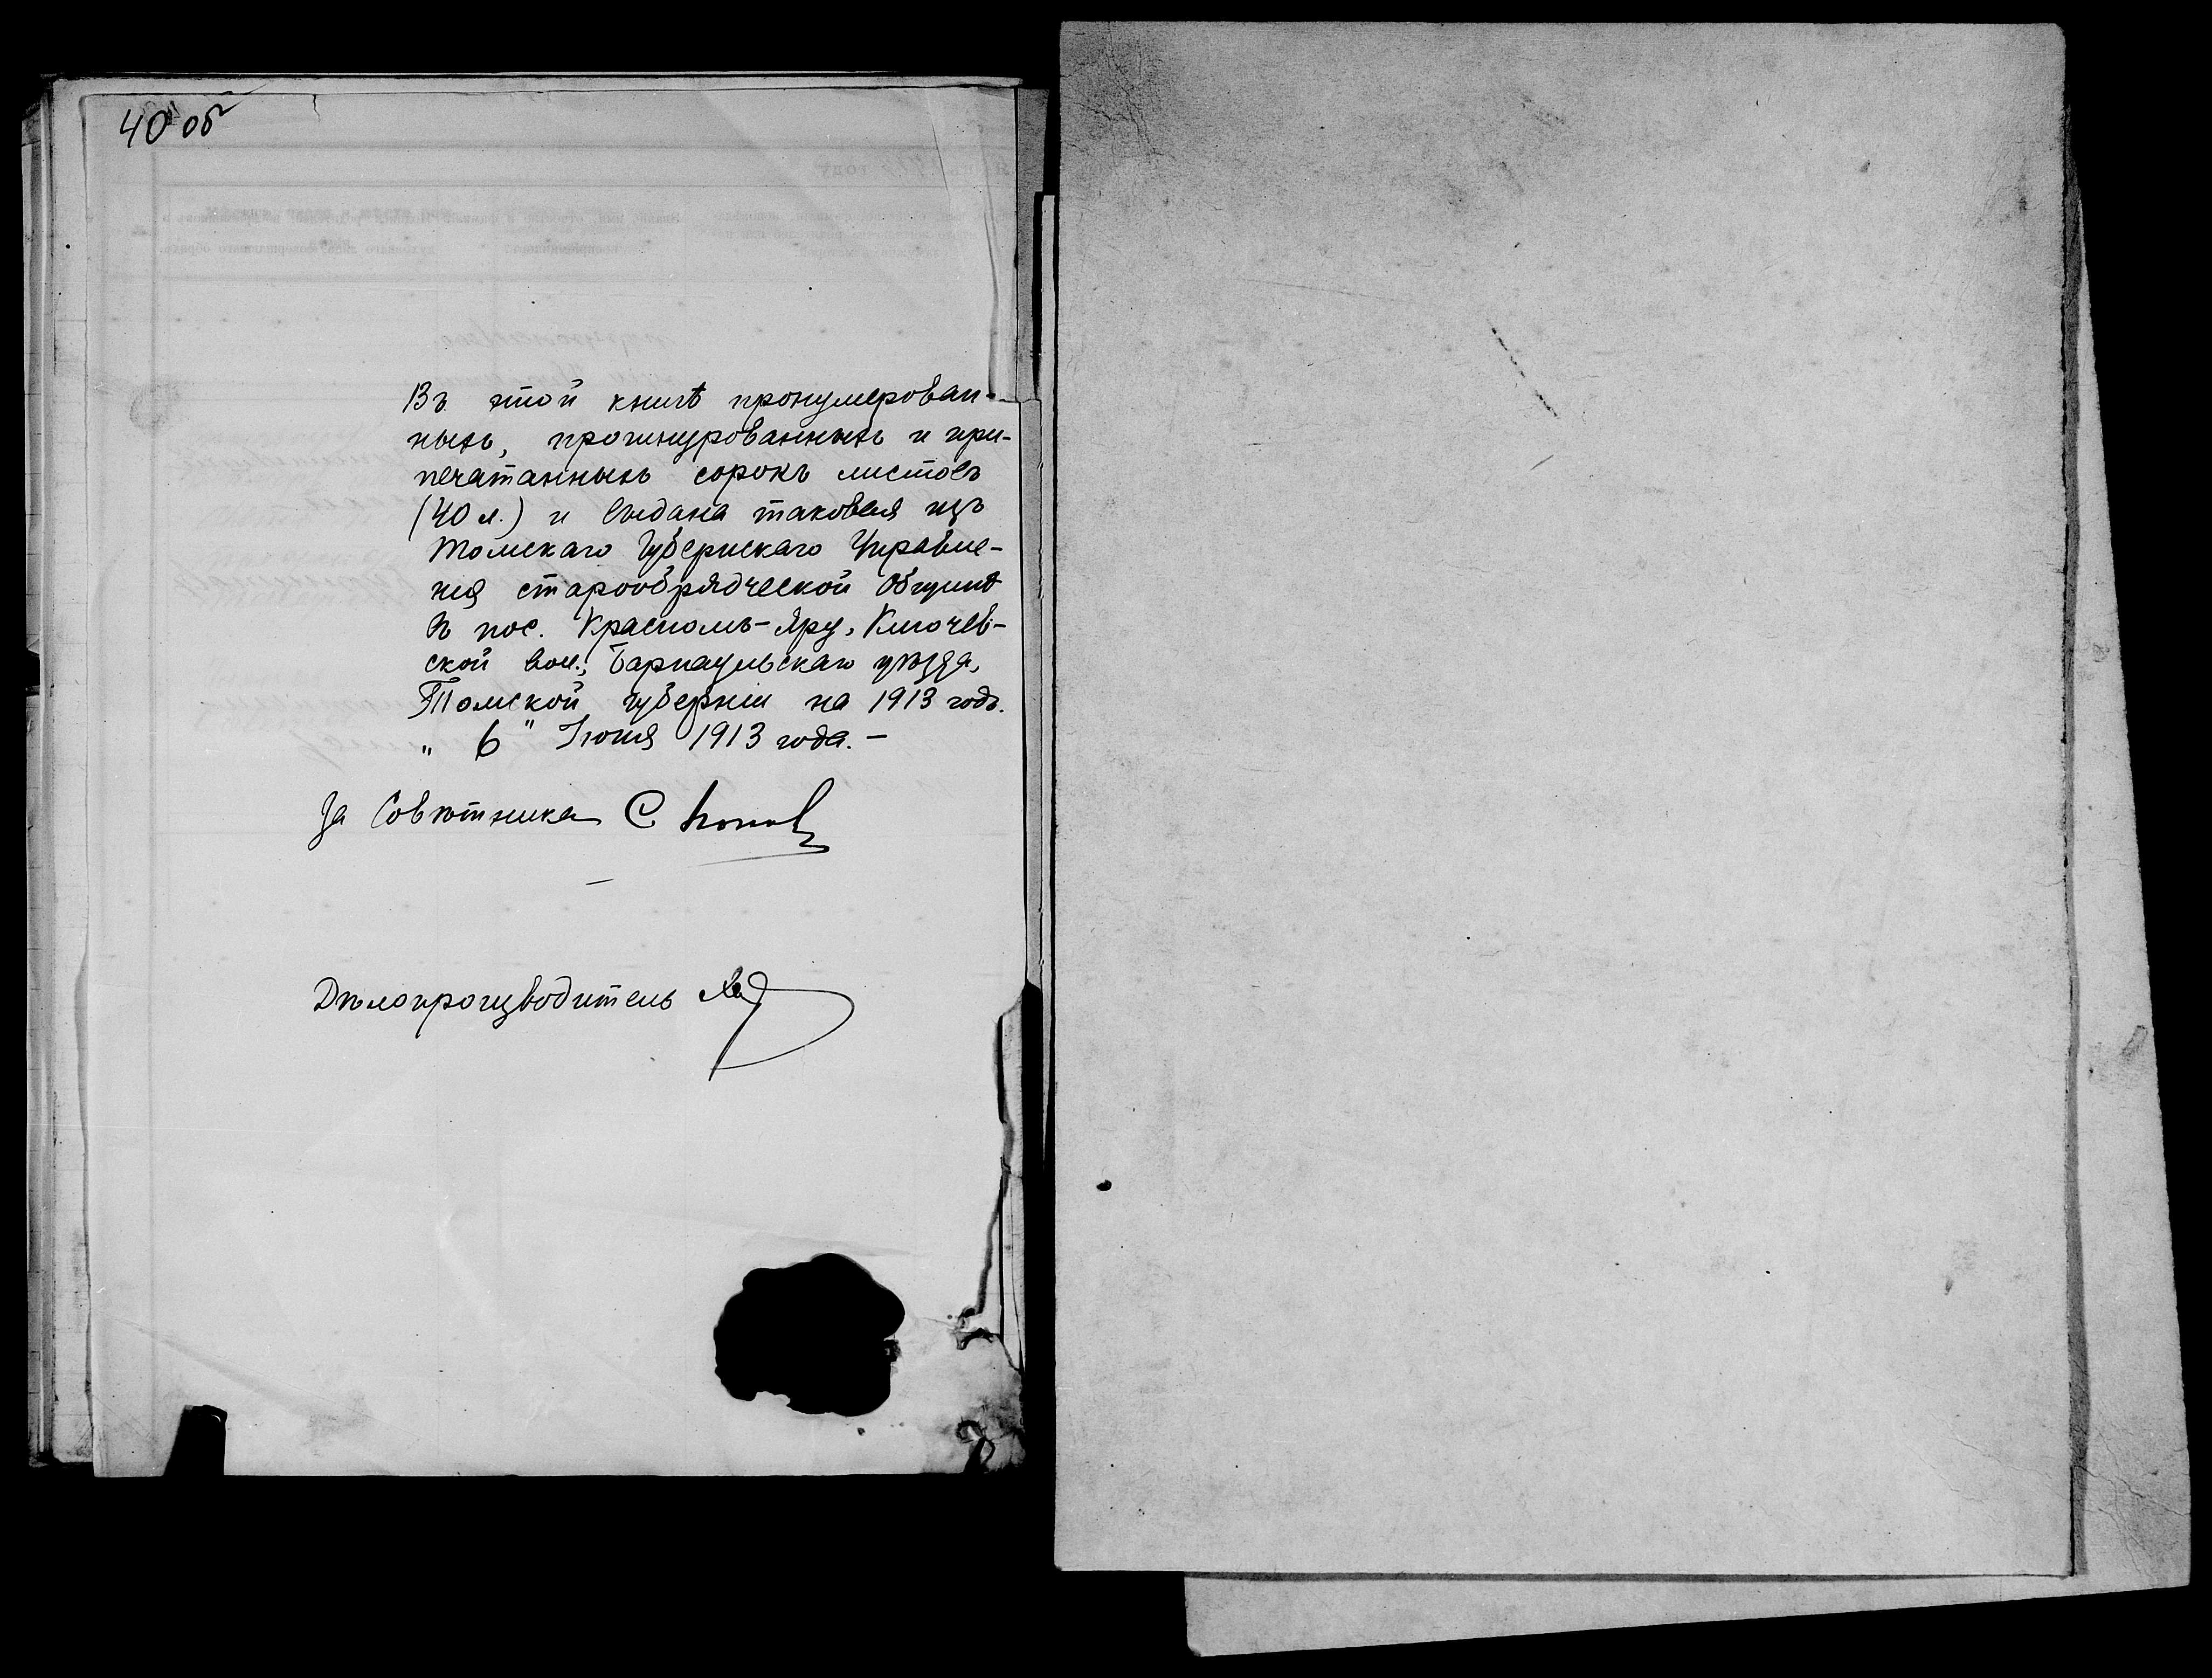 40 об
Въ этой книгѣ пронумерован-
ныхъ, прошнурованныхъ и при-
печатанныхъ сорокъ листовъ
(40 л.) и выдана таковая изъ
Томскаго Губернскаго Управле-
нія старообрядческой Общинѣ
въ пос. Красномъ-Яру, Ключев-
ской вол., Барнаульскаго уѣзда,
Томской губерніи на 1913 годъ.
„ 6 " Іюня 1913 года. –
За Совѣтника С. Попов
Дѣлопроизводитель